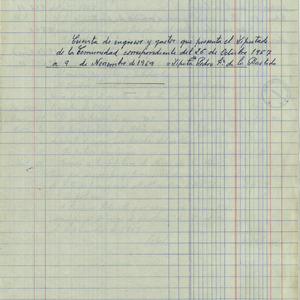 Cuenta de ingresos y gastos que presenta el Diputado
de la Comunidad correspondiente del 26 de Octubre 1957
a 9 de Noviembre de 1959 Diputº Pedro Fz de la Bastida